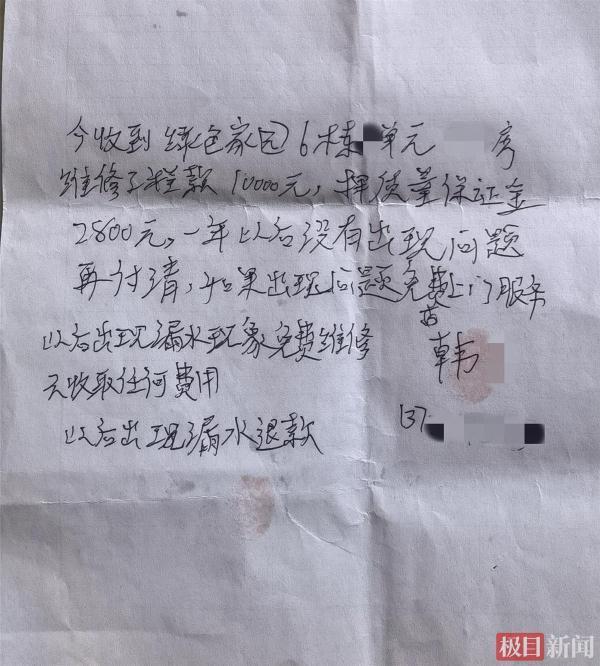 今收到绿色家园6栋 单元 房
维修工程款10000元,押质量保证金
2800元,一年以后没有出现问题
再付清,如果出现问题免费上门服务
以后出现漏水现象免费维修
韩
无收取任何费用
137
以后出现漏水退款
极目新闻